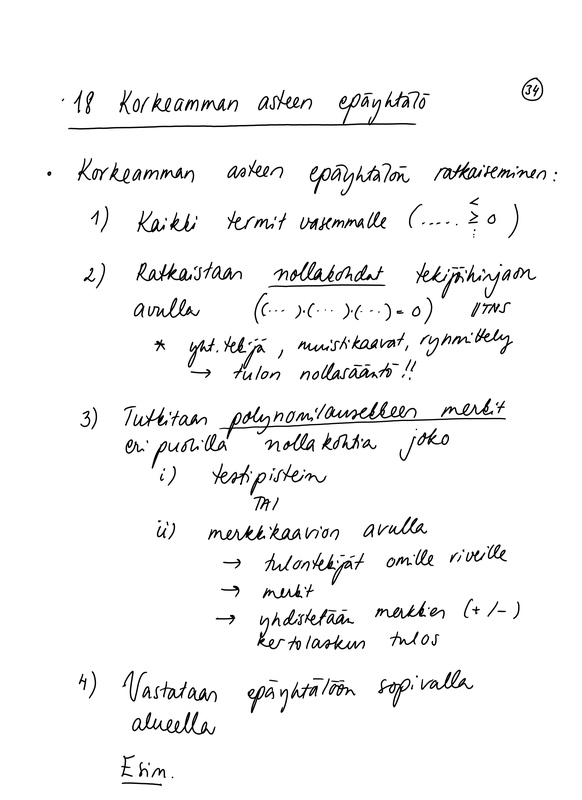 · 18 Korkeamman asteen epäyhtälö
34
• Korkeamman asteen epäyhtälön ratkaiseminen:
1) Kaikki termit vasemmalle (..... ≥ 0 )
<
⋮
2) Ratkaistaan nollakohdat tekijöihinjaon
avulla ((...)·(...)·(...)= 0) //TNS
* yht. tekijä, muistikaavat, ryhmittely
→ tulon nollasääntö!!
3) Tutkitaan polynomilausekkeen merkit
eri puolilla nollakohtia joko
i) testipistein
TAI
ii) merkkikaavion avulla
→ tulontekijät omille riveille
→ merkit
→ yhdistetään merkkien (+/-)
kertolaskun tulos
4) Vastataan epäyhtälöön sopivalla
alueella
Esim.